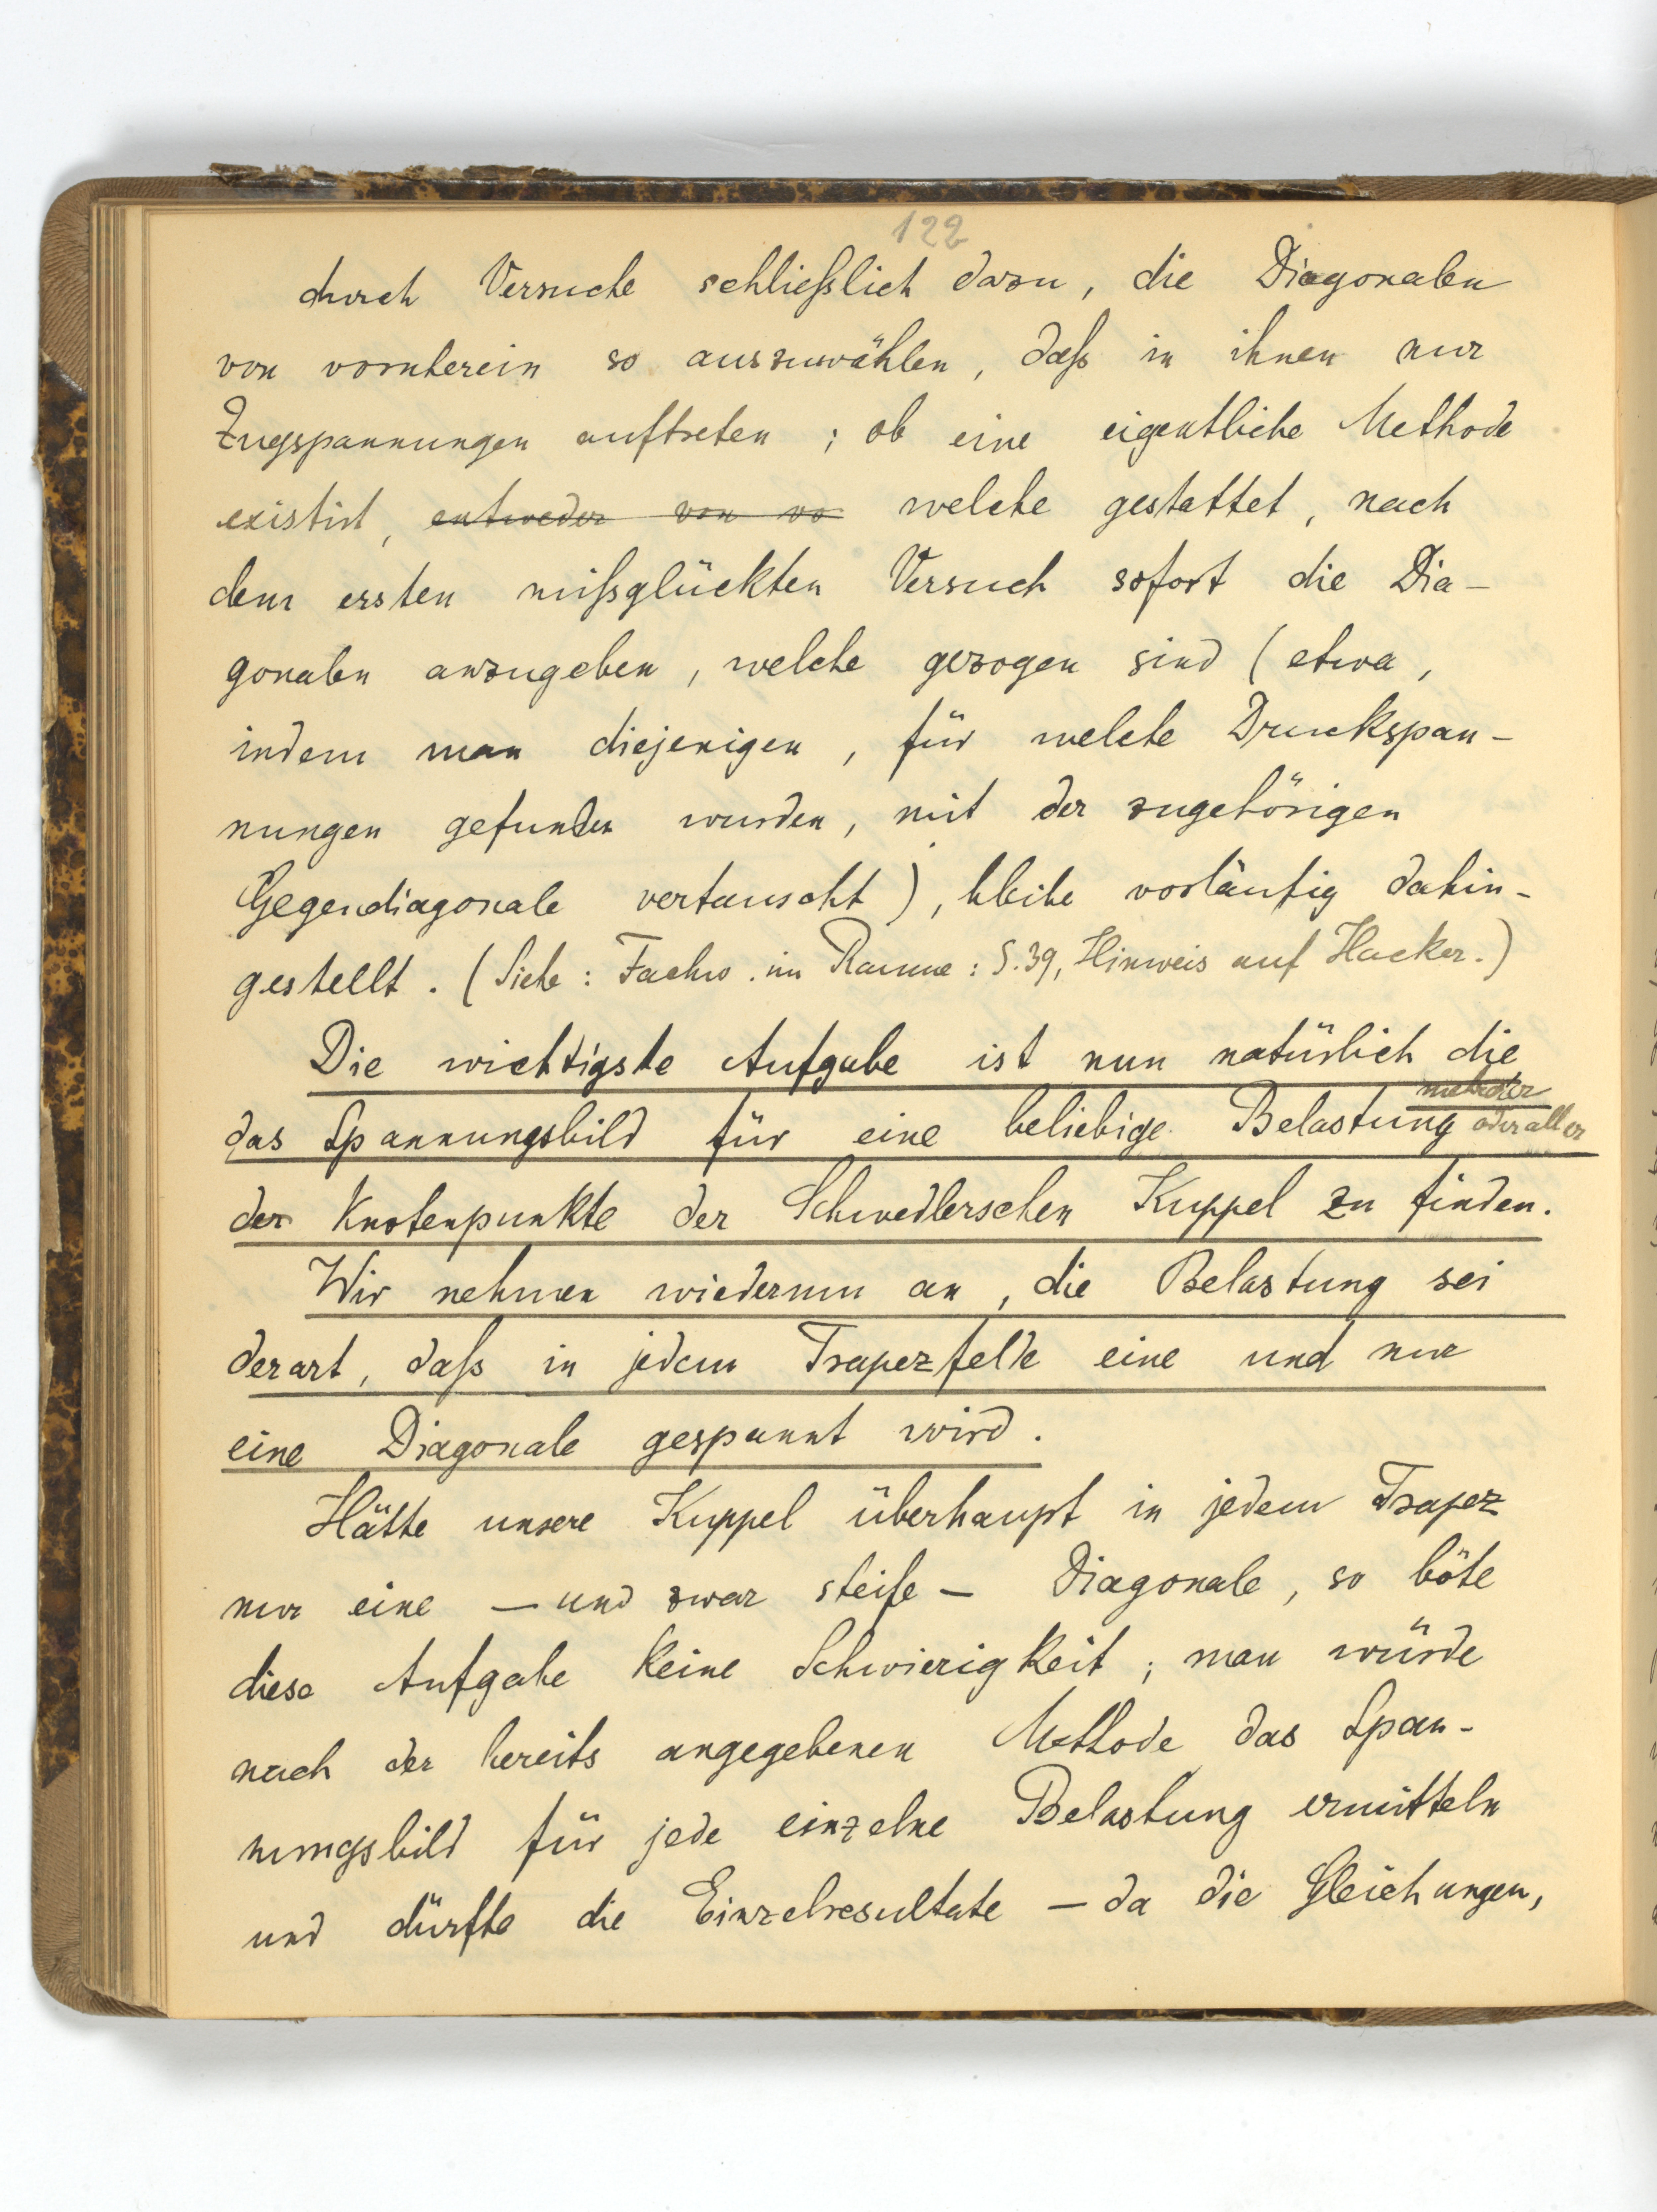 122
durch Versuche schließlich dazu, die Diagonalen
von vornherein so auszuwählen, daß in ihnen nur
Zugspannungen auftreten; ob eine eigentliche Methode
existirt, entweder von vo welche gestattet, nach
dem ersten mißglückten Versuch sofort die Dia-
gonalen anzugeben, welche gezogen sind (etwa,
indem man diejenigen, für welche Druckspan-
nungen gefunden wurden, mit der zugehörigen
Gegendiagonale vertauscht), bleibe vorläufig dahin-
gestellt. (Siehe: Fachw. im Raume: S.39, Hinweis auf Hacker.)
Die wichtigste Aufgabe ist nun natürlich die
mehrerer
das Spannungsbild für eine beliebige Belastung oder aller
der Knotenpunkte der Schwedlerschen Kuppel zu finden.
Wir nehmen wiederum an, die Belastung sei
derart, daß in jedem Trapezfelde eine und nur
eine Diagonale gespannt wird.
Hätte unsere Kuppel überhaupt in jedem Trapez
nur eine – und zwar steife – Diagonale, so böte
diese Aufgabe keine Schwierigkeit; man würde
nach der bereits angegebenen Methode das Span-
nungsbild für jede einzelne Belastung ermitteln
und dürfte die Einzelresultate – da die Gleichungen,